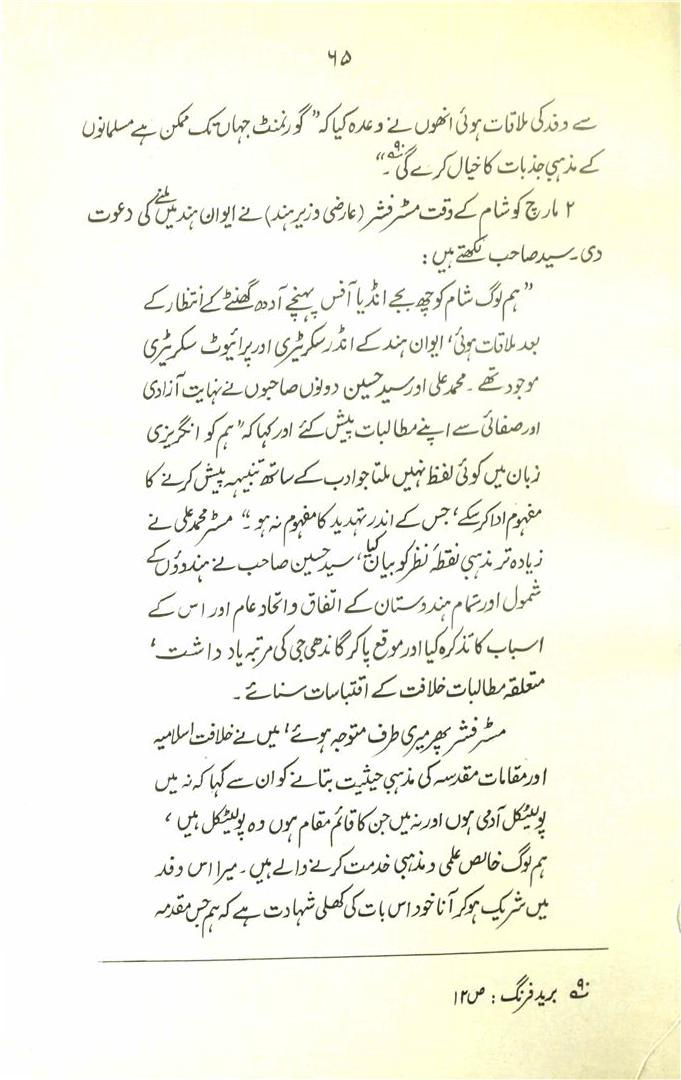 ۶۵
سے وفد کی ملاقات ہوئی انھوں نے وعدہ کیا کہ "گورنمنٹ جہاں تک ممکن ہے مسلمانوں
کے مذہبی جذبات کا خیال کرے گی ۹۰۔"
۲ مارچ کو شام کے وقت مسٹر فشر (عارضی وزیر ہند) نے ایوان ہند میں ملنے کی دعوت
دی۔ سید صاحب لکھتے ہیں:
"ہم لوگ شام کو چھ بجے انڈیا آفس پہنچے آدھ گھنٹے کے انتظار کے
بعد ملاقات ہوئی، ایوان ہند کے انڈر سکریٹری اور پرائیوٹ سکریٹری
موجود تھے۔ محمد علی اور سید حسین دونوں صاحبوں نے نہایت آزادی
اور صفائی سے اپنے مطالبات پیش کئے اور کہا کہ "ہم کو انگریزی
زبان میں کوئی لفظ نہیں ملتا جو ادب کے ساتھ تنبیہہ پیش کرنے کا
مفہوم ادا کرسکے، جس کے اندر تہدید کا مفہوم نہ ہو۔" مسٹر محمد علی نے
زیادہ تر مذہبی نقطۂ نظر کو بیان کیا، سید حسین صاحب نے ہندوؤں کے
شمول اور تمام ہندوستان کے اتفاق و اتحاد عام اور اس کے
اسباب کا تذکرہ کیا اور موقع پاکر گاندھی جی کی مرتبہ یاد داشت،
متعلقہ مطالبات خلافت کے اقتباسات سنائے۔
مسٹر فشر پھر میری طرف متوجہ ہوئے، میں نے خلافت اسلامیہ
اور مقامات مقدسہ کی مذہبی حیثیت بتانے کو ان سے کہا کہ نہ میں
پولیٹکل آدمی ہوں اور نہ میں جن کا قائم مقام ہوں وہ پولیٹکل ہیں،
ہم لوگ خالص علمی و مذہبی خدمت کرنے والے ہیں۔ میرا اس وفد
میں شریک ہوکر آنا خود اس بات کی کھلی شہادت ہے کہ ہم جس مقدمہ
۹۰ برید فرنگ: ص ۱۲